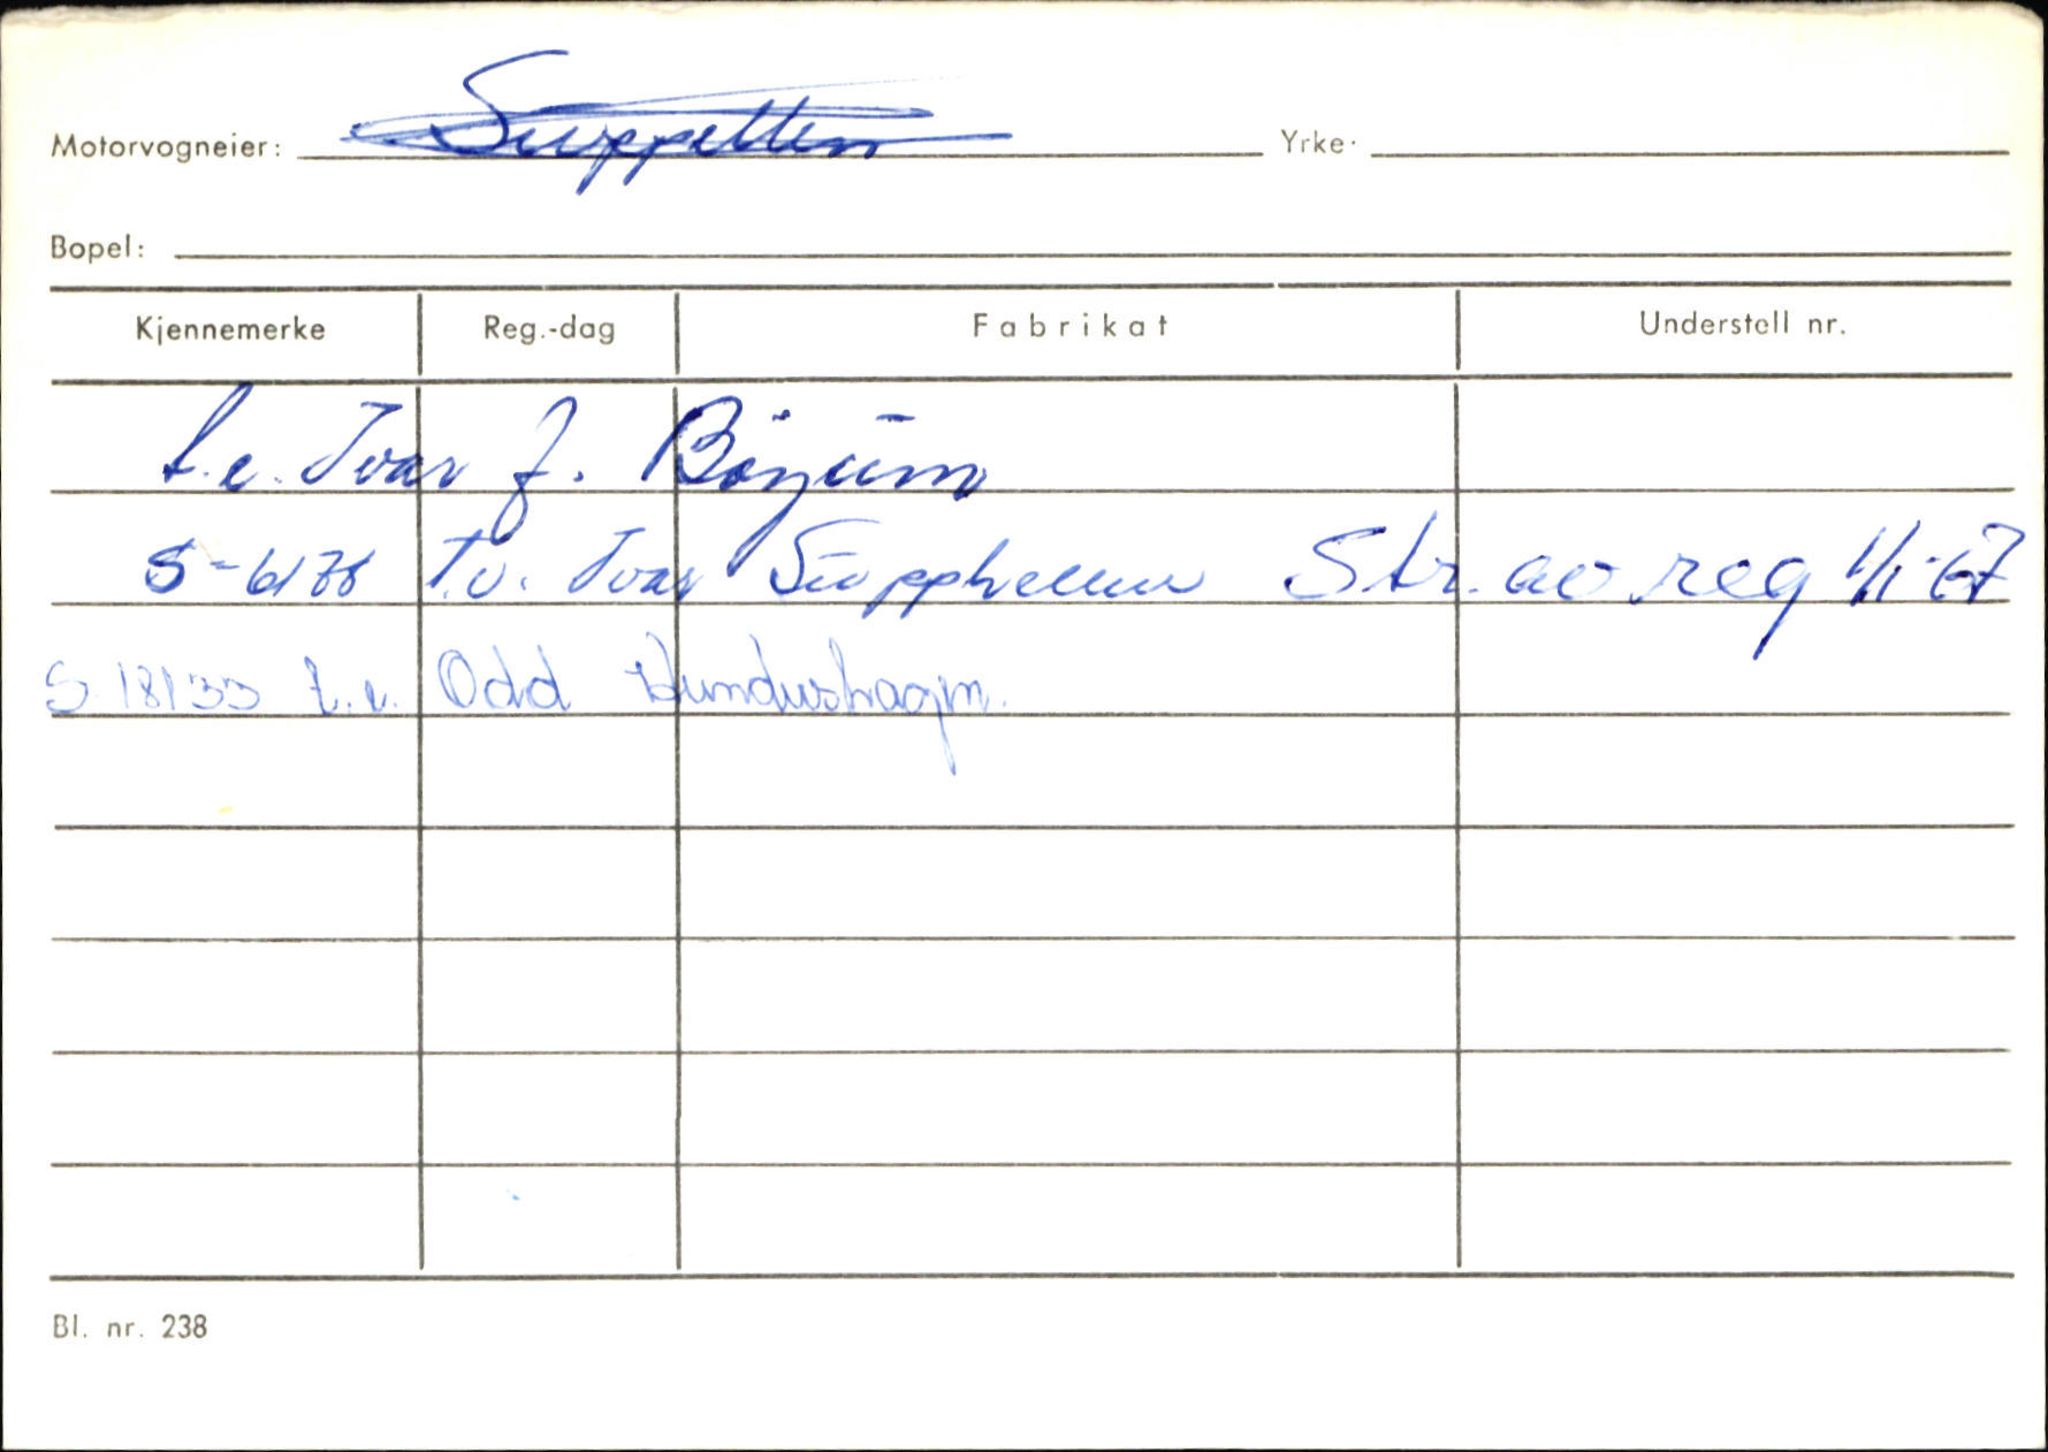 Motorvogneier: Supphellen Yrke·
Bopel:
Kjennemerke Reg.-dag Fabrikat Understell nr.
t.v. Ivar J. Bøyum
S-6178 T.v. Ivar Supphellen Str. av reg 1/1-67
S 18133 t.v. Odd Hundershagen.
Bl. nr. 238